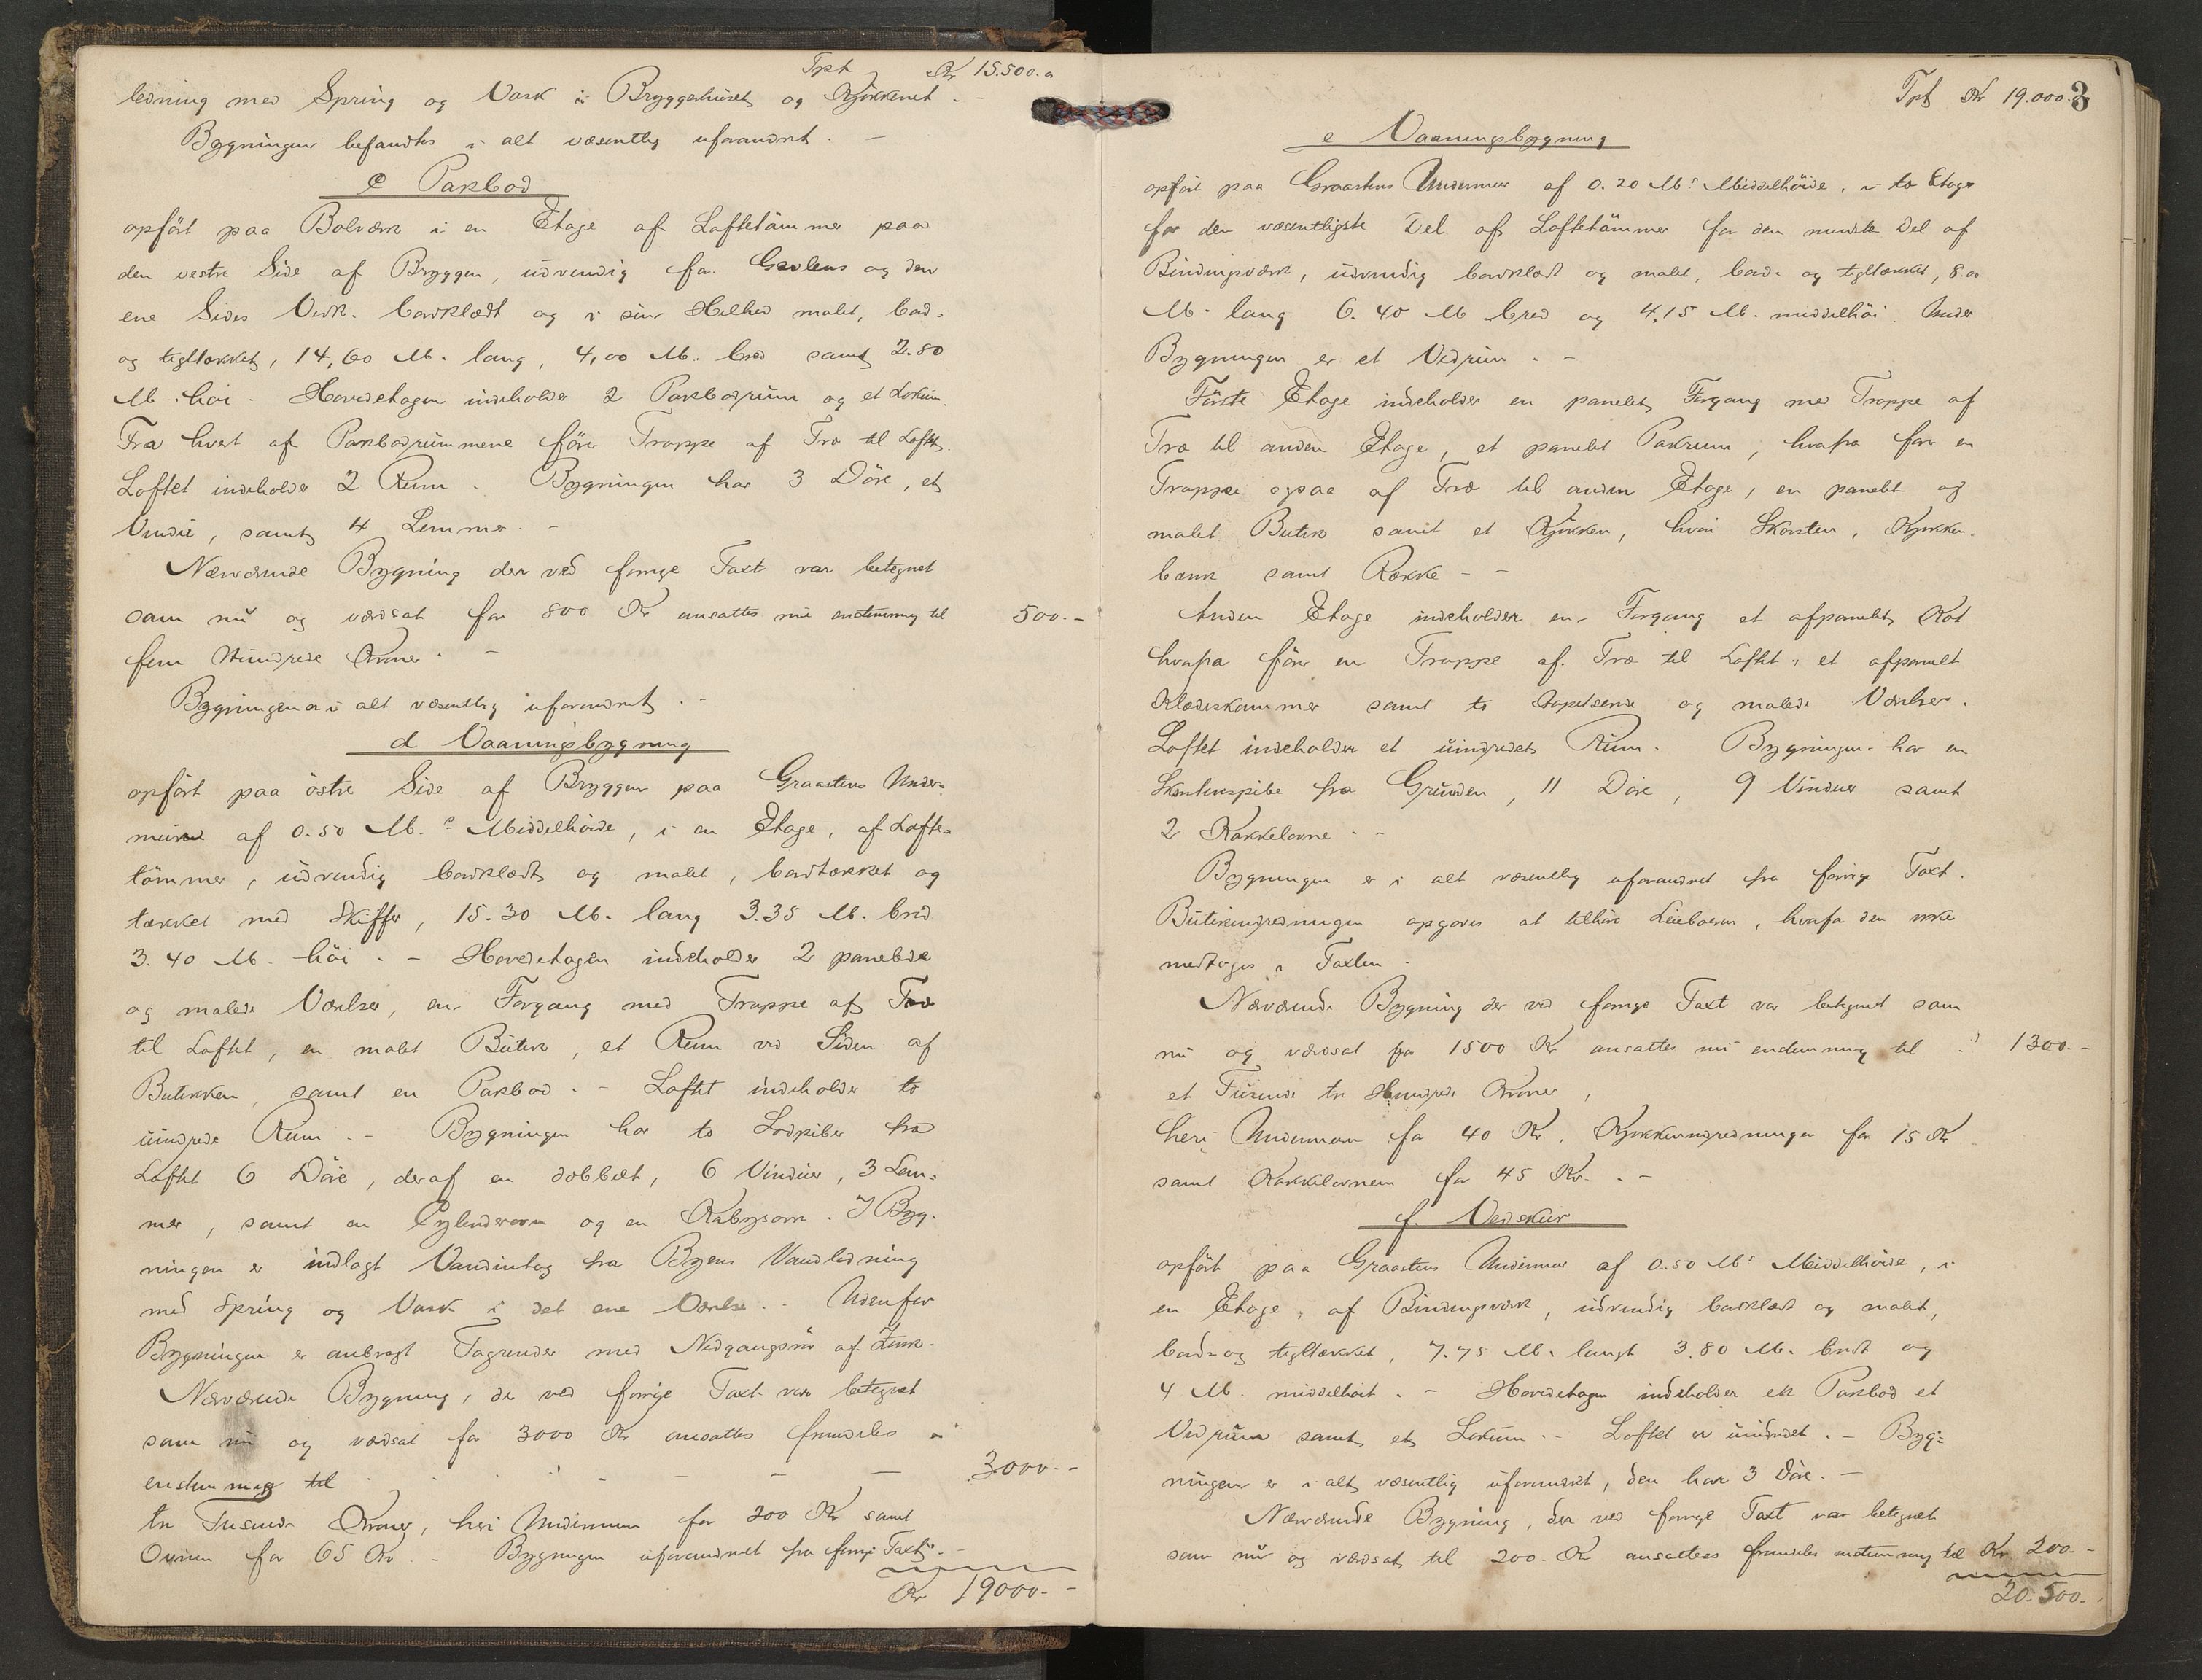 Tpt Kr 15.500.-
ledning med Spring og Vask i Bryggerhuset og Kjøkkenet. -
Bygningen befandtes i alt væsentlig uforandret. -
c Pakbod
opført paa Bolværk i en Etage af Loftetømmer paa
den vestre Side af Bryggen, udvendig fra Gavlens og den
ene Sides Vedk. bordklædt og i sin Helhed malet, bord-
og tegltækket, 14,60 M. lang, 4,00 M. bred samt 2.80
M. høi. Hovedetagen indeholder 2 Pakbodrum og et Lokum.
Fra hvert af Pakbodrummene fører Trappe af Træ til Loftet.
Loftet indeholder 2 Rum. Bygningen har 3 Døre, et
Vindu, samt 4 Lemme. -
Nærværende Bygning der ved forrige Taxt var betegnet
som nu og værdsat for 800 Kr ansattes nu enstemmig til 500.-
fem Hundrede Kroner. -
Bygningen er i alt væsentlig uforandret. -
d Vaaningsbygning
opført paa østre Side af Bryggen paa Graastens Under-
mur af 0.50 M.s Middelhøide, i en Etage, af Lofte-
tømmer, udvendig bordklædt og malet, bordtækket og
tækket med Skiffer, 15.30 M. lang 3.35 M. bred
3.40 M. høi. - Hovedetagen indeholder 2 panelede
og malede Værelser, en Forgang med Trappe af Træ
til Loftet, en malet Butik, et Rum ved Siden af
Butikken, samt en Pakbod. - Loftet indeholder to
uindrede Rum. - Bygningen har to Lodpiber fra
Loftet 6 Døre, deraf en dobbelt, 6 Vinduer, 3 Lem-
mer, samt en Cylinderovn og en Kabysovn. I Byg-
ningen er indlagt Vandintag fra Byens Vandledning
med Spring og Vask i det ene Værelse. - Udenfor
Bygningen er anbragt Tagrender med Nedgangsrør af Zink.
Nærværende Bygning, der ved forrige Taxt var betegnet
som nu og værdsat for 3000 Kr ansattes fremdeles
enstemmig til - - - 3000.-
tre Tusende Kroner, heri Undermuren for 200 Kr samt
Ovnen for 65 Kr. - Bygningen uforandret fra forrige Taxt. -
Kr 19000.-
Tpt Kr 19.000.- 3
e Vaaningsbygning
opført paa Graastens Undermur af 0.20 M.s Middelhøide, i to Etager
for den væsentligste Del af Loftetømmer for den mindste Del af
Bindingsværk, udvendig bordklædt og malet, bord- og tegltækket, 8.00
M. lang 6.40 M bred og 4,15 M. middelhøi. Under
Bygningen er et Vedrum. -
Første Etage indeholder en panelet Forgang med Trappe af
Træ til anden Etage, et panelet Pakrum, hvorfra fører en
Trappe ogsaa af Træ til anden Etage, en panelet og
malet Butik samt et Kjøkken, hvori Skorsten, Kjøkken-
bænk samt Række - -
Anden Etage indeholder en Forgang et afpanelet Kot
hvorfra fører en Trappe af Træ til Loftet, et afpanelt
Klædeskammer samt to tapetserede og malede Værelser.
Loftet indeholder et uindredet Rum. Bygningen har en
Skorstenspibe fra Grunden, 11 Døre, 9 Vinduer samt
2 Kakkelovne. -
Bygningen er i alt væsentlig uforandret fra forrige Taxt.
Butikindredningen opgaves at tilhøre Leieboeren, hvorfor den ikke
medtages i Taxten.
Nærværende Bygning der ved forrige Taxt var betegnet som
nu og værdsat for 1500 Kr ansattes nu enstemmig til 1300.-
et Tusende tre Hundrede Kroner,
heri Undermuren for 40 Kr, Kjøkkenindredningen for 15 Kr
samt Kakkelovnene for 45 Kr. -
f. Vedskur
opført paa Graastens Undermur af 0.50 M.s Middelhøide, i
en Etage, af Bindingsværk, udvendig bordklædt og malet,
bord- og tegltækket, 7.75 M. langt 3.80 M. bredt og
4 M. middelhøit. - Hovedetagen indeholder en Pakbod et
Vedrum samt et Lokum. - Loftet er uindredet. - Byg-
ningen er i alt væsentlig uforandret, den har 3 Døre. -
Nærværende Bygning, der ved forrige Taxt var betegnet
som nu og værdsat til 200. Kr ansattes fremdeles enstemmig til Kr 200.-
20.500.-